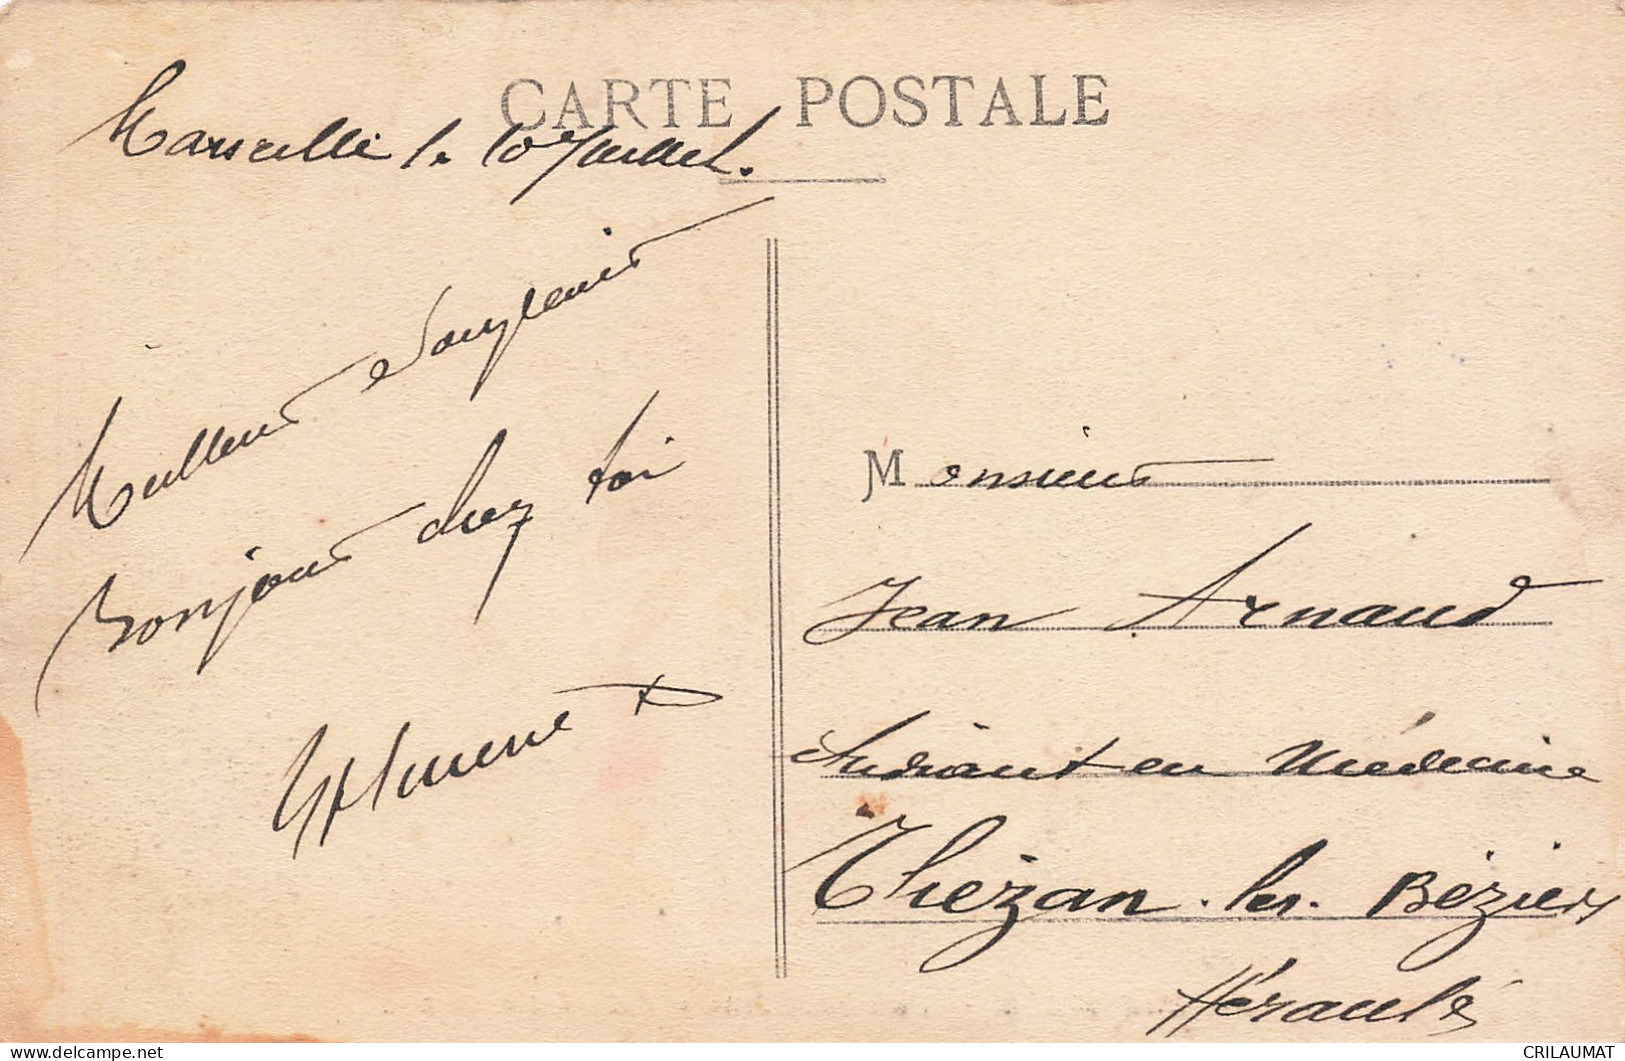 CARTE POSTALE
Marseille le 10 Juillet.
Meilleurs Souvenirs
Bonjour chez toi
Monsieur
Jean Arnaud
Etudiant en Médecine
Thézan-les-Béziers
Hérault
CRILAUMAT